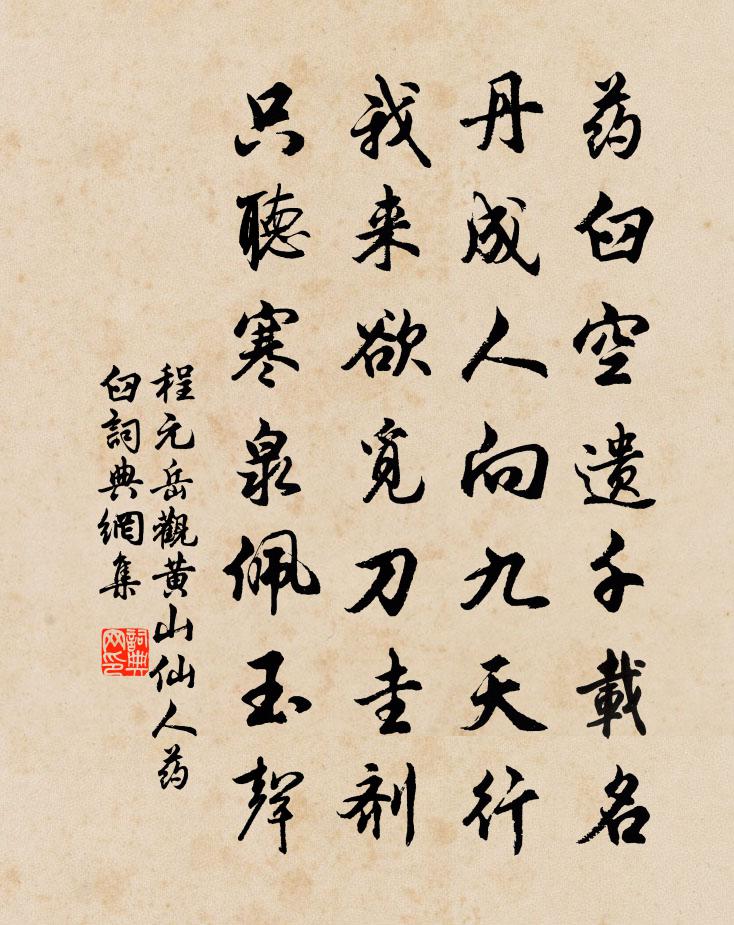 药臼空遗千載名
丹成人向九天行
我来欲覓刀圭剂
只聴寒泉佩玉聲
程元岳觀黄山仙人药
臼詞典網集
詞典网印